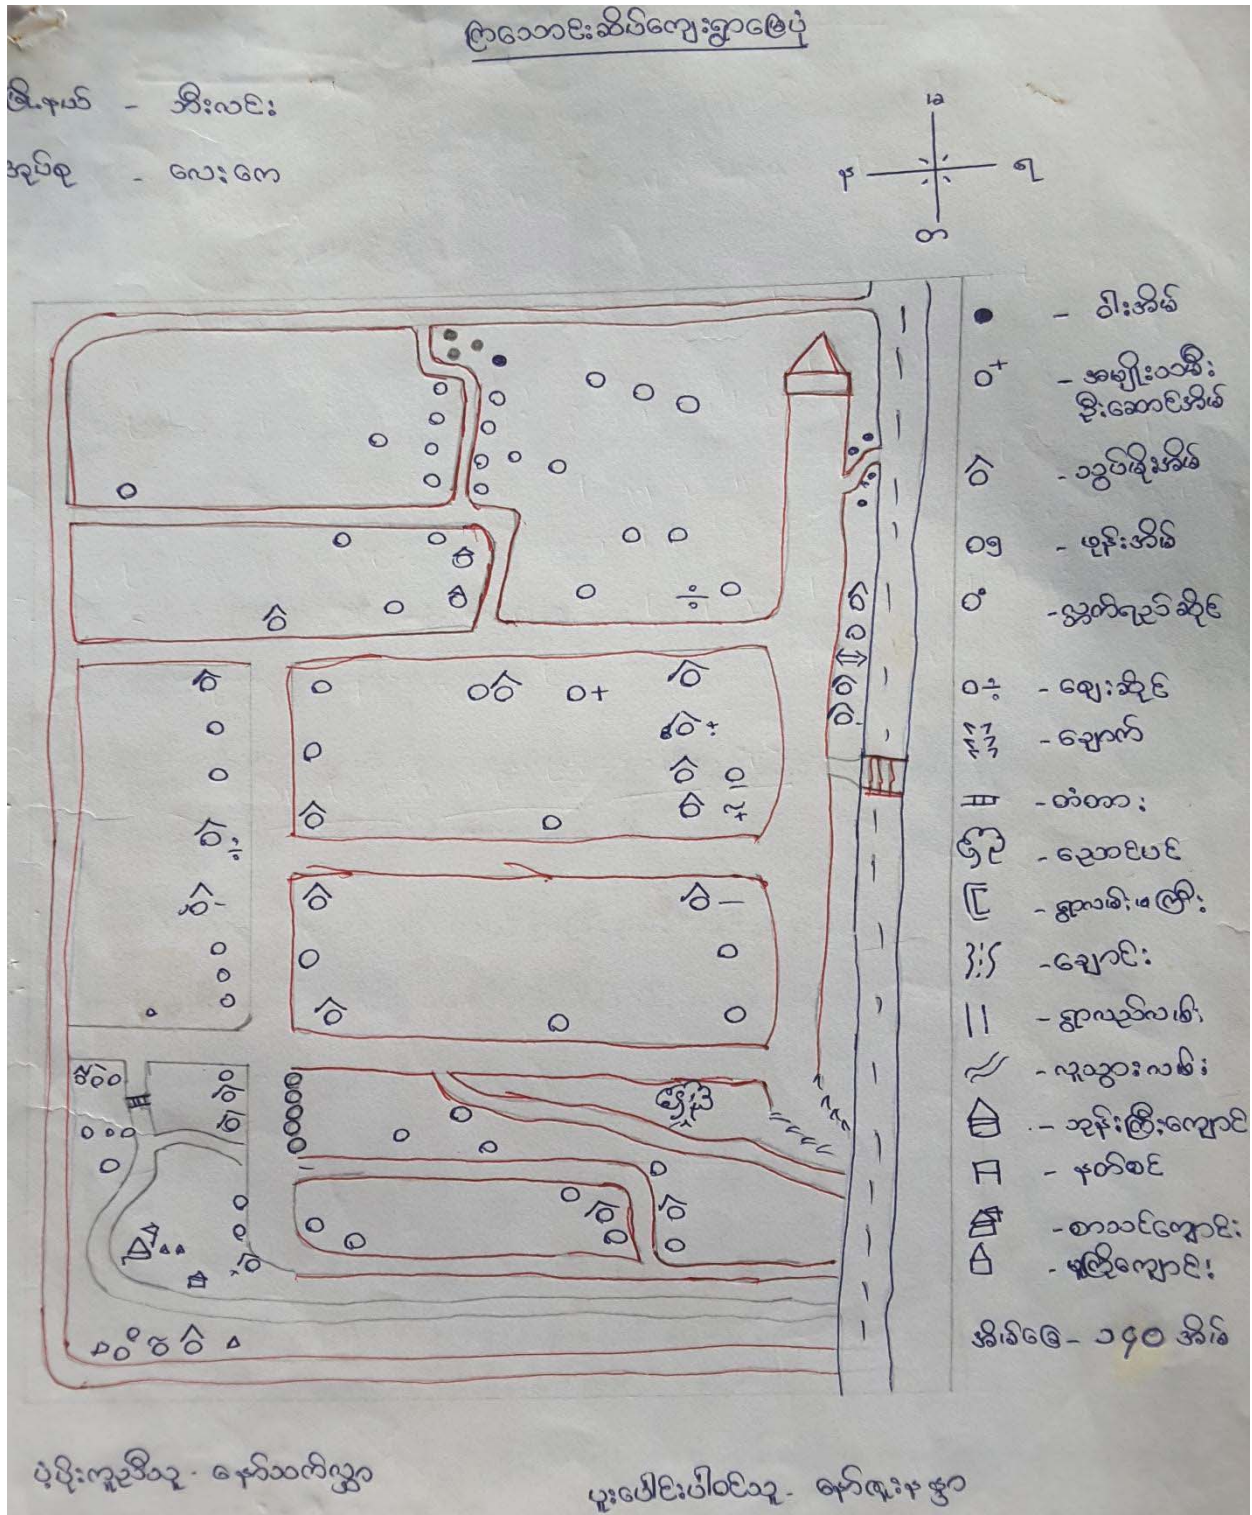 ကြသောင်းဆိပ်ကျေးရွာမြေပုံ
မြို့နယ် - ဘီးလင်း
အုပ်စု - လေးကေ
ခ
န
ရ
တ
- ဝါးအိမ်
- အမျိုးသမီး
ဦးဆောင်အိမ်
- သွပ်မိုးအိမ်
- ဖုန်းအိမ်
- လ္ဘက်ရည်ဆိုင်
- ဈေးဆိုင်
- ချောက်
- တံတား
- ညောင်ပင်
- ရွာလမ်းမကြီး
- ချောင်း
- ရွာလည်လမ်း
- လူသွားလမ်း
- ဘုန်းကြီးကျောင်း
- နတ်စင်
- စာသင်ကျောင်း
- မူကြိုကျောင်း
အိမ်ခြေ - ၁၄၀ အိမ်
ပံ့ပိုးကူညီသူ - နော်သက်လ္ဘာ
ပူးပေါင်းပါဝင်သူ -